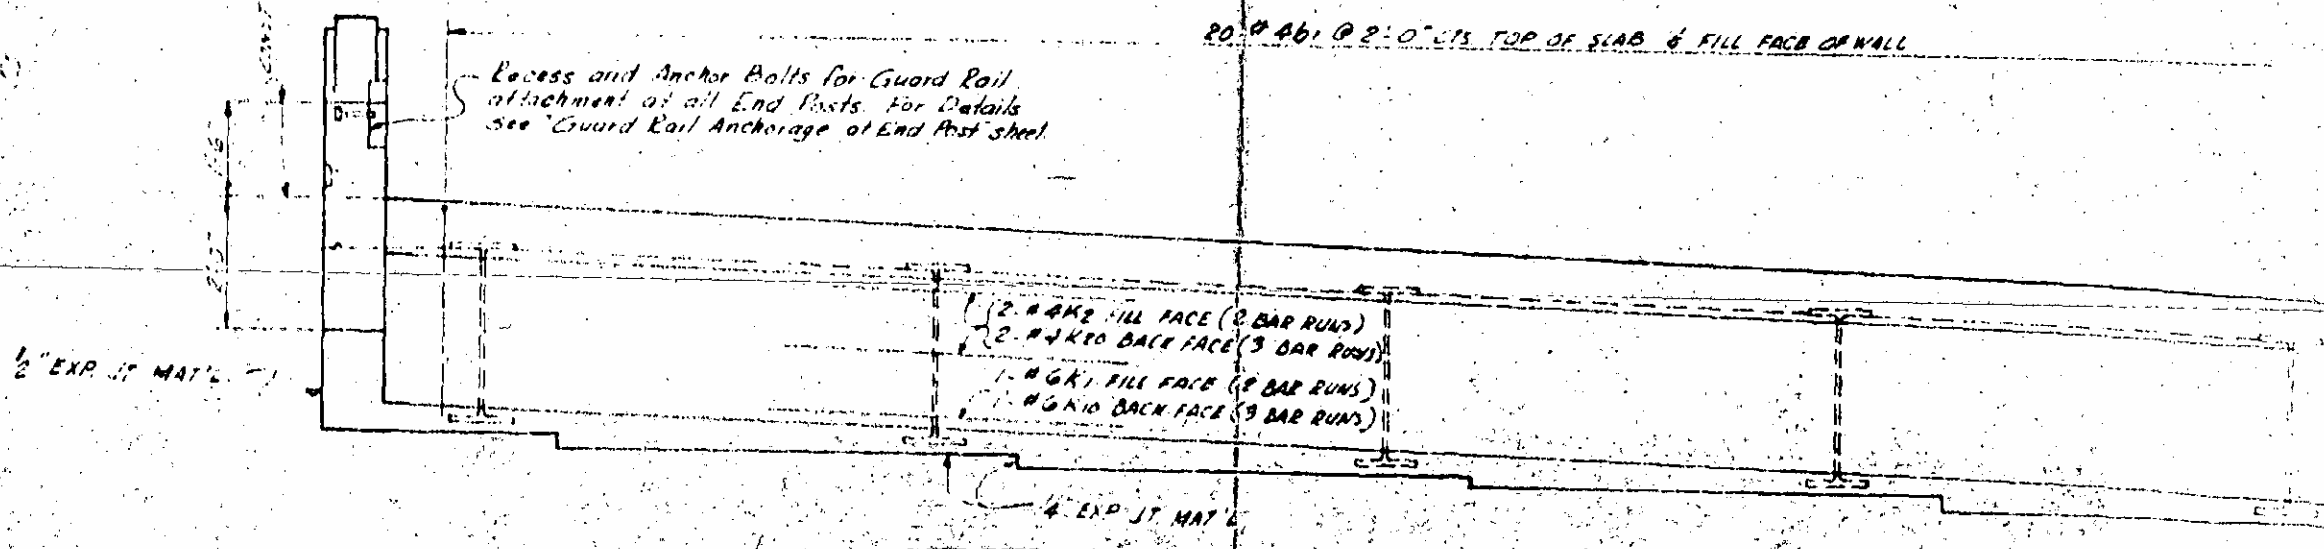 20 # 4b1 @ 2'-0" CTS. TOP OF SLAB & FILL FACE OF WALL
Recess and Anchor Bolts for Guard Rail
attachment at all End Posts. For Details
See "Guard Rail Anchorage at End Post" sheet.
2-#4K2 FILL FACE (2 BAR RUNS)
2-#4K20 BACK FACE (3 BAR RUNS)
1-#6K1 FILL FACE (2 BAR RUNS)
1-#6K10 BACK FACE (3 BAR RUNS)
½" EXP. JT. MAT'L.
EXP. JT. MAT'L